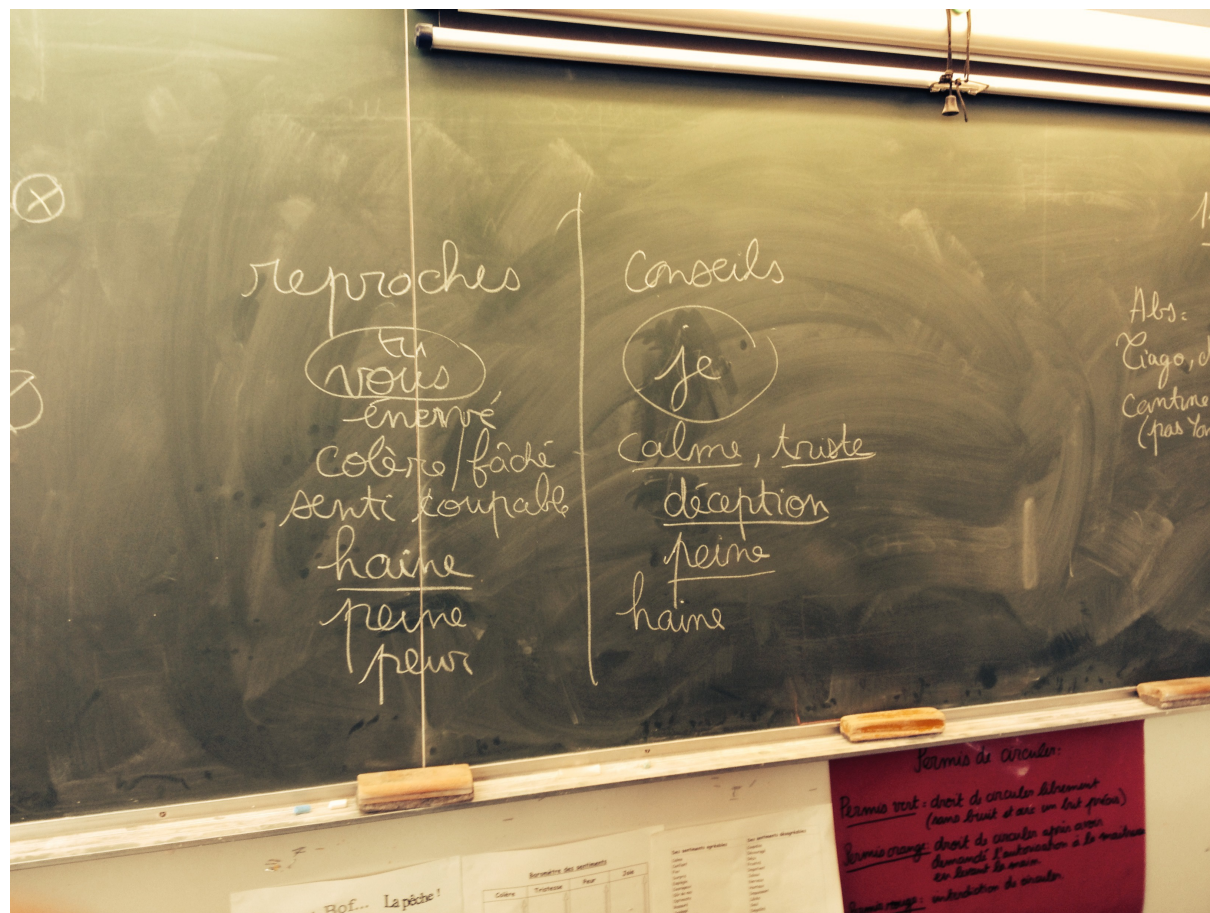 reproches
tu
vous
énervé
colère/fâché
senti coupable
haine
peine
peur
Conseils
je
calme, triste
déception
peine
haine
Abs:
Tiago,
Cantine
(pas
Permis de circuler:
Permis vert: droit de circuler librement
(sans bruit et avec un but précis)
Permis orange: droit de circuler après avoir
demandé l'autorisation à la maîtresse
en levant la main
Permis rouge: interdiction de circuler
Bof... La pêche !
Baromètre des sentiments
Colère Tristesse Peur Joie
Des sentiments agréables
Des sentiments désagréables